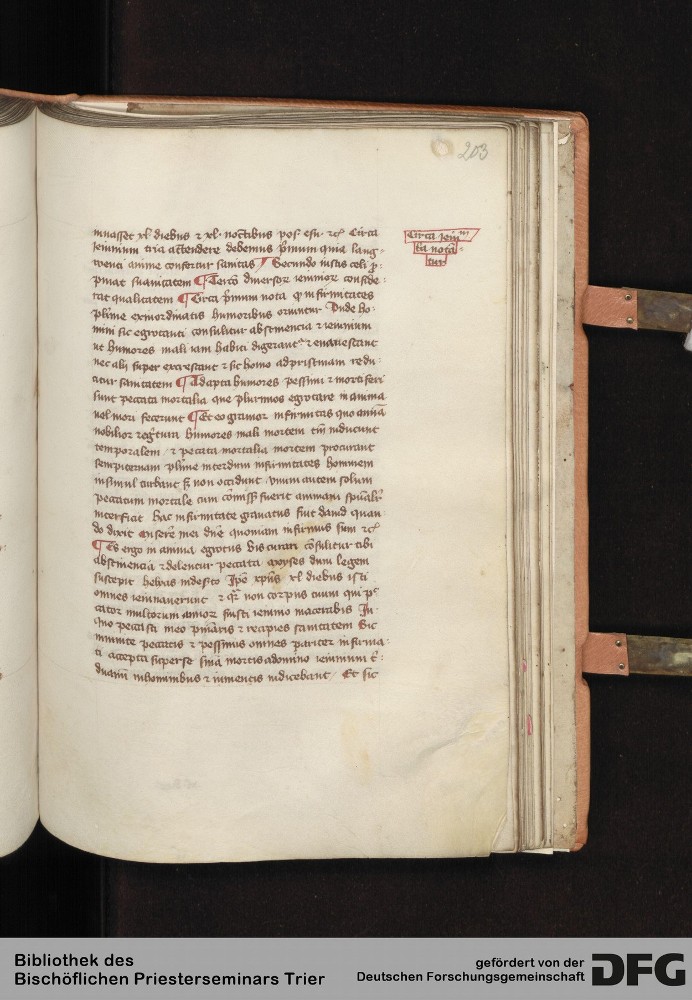 203
Circa ieiu͞m
ita nota͞
tur
xl diebus ⁊ xl noctibus pos esu ⁊c̄ Circa
ieiunium tria attendere debemus p̄mum quia lang-
wenti anime confertur sanitas Secundo iustis celi
suauitatem ¶ Tercō diuersor ieiunior conside
rat qualitatem ¶ Circa p̄mum nota q infirmitates
plīme ex inordinatis humoribus oriuntur Unde ho-
mini sic egrotanti consulitur abstinencia ⁊ ieiunium
ut humores mali iam habiti digerant² ⁊ euanescant
nec alij super excrescant ⁊ sic homo ad pristinam redu-
citur sanitatem ¶ Adapta humores pessimi ⁊ mortiferi
sunt peccata mortalia que plurimos egrotare in anima
uel mori fecerunt ¶ Et eo grauior infirmitas quo anima
nobilior humores mali mortem tm̄ inducunt
temporalem ⁊ peccata mortalia mortem procurant
sempiternam plīme interdum infirmitates hominem
insimul turbant sꝫ non occidunt unum autem solum
peccatum mortale cum cōmiss̄ fuerit animam spūalit²
interficit hac infirmitate grauatus fuit dauid quan-
do dixit miserē mei dn̄e quoniam infirmus sum ⁊c̄
¶ Es ergo in anima egrotus vis curari cōsulitur tibi
abstinencia ⁊ delentur peccata moyses dum legem
suscepit Ip̄e xp̄us xl diebus isti
omnes ieiunauerunt ⁊ q̄r non corpus tuum qui pec
cator multorum ieiunio macerabis In
quo peccasti ⁊ recipies sanitatem Sic
niniuite peccatis ⁊ pessimis omnes pariter infirma-
ti accepta super se sn̄ia mortis a domino ieiunium
in hominibus ⁊ iumentis indicebant Et sic
Bibliothek des
Bischöflichen Priesterseminars Trier
gefördert von der
Deutschen Forschungsgemeinschaft
DFG